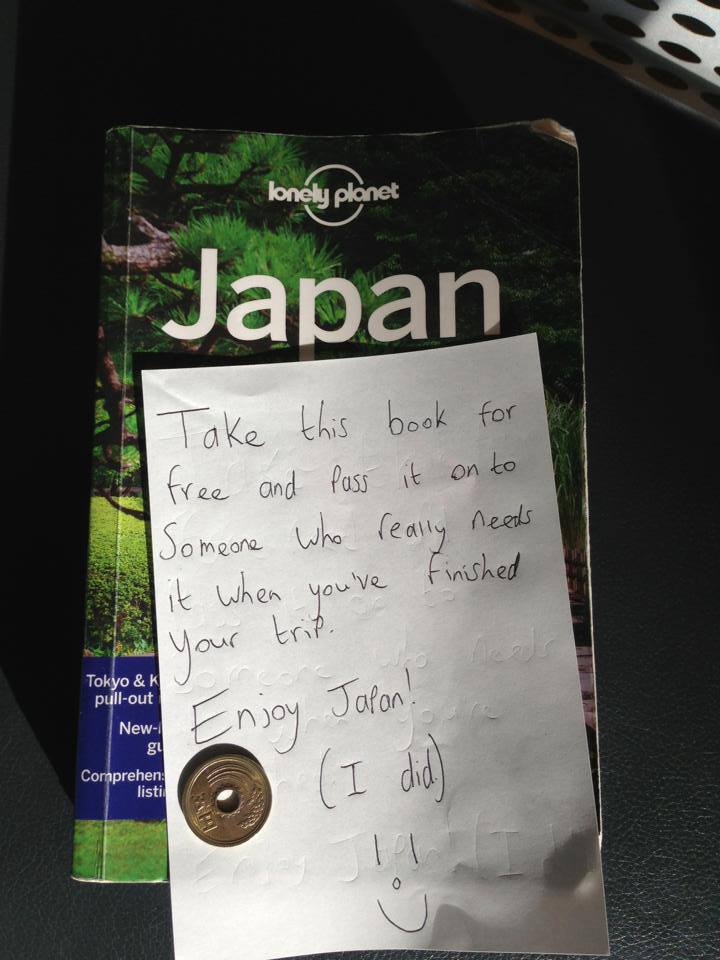 lonely planet
Japan
Take this book for
free and pass it on to
Someone who really needs
it when you've finished
your trip.
Enjoy Japan!
(I did)
Tokyo & K
pull-out
New-
gu
Comprehens
listi